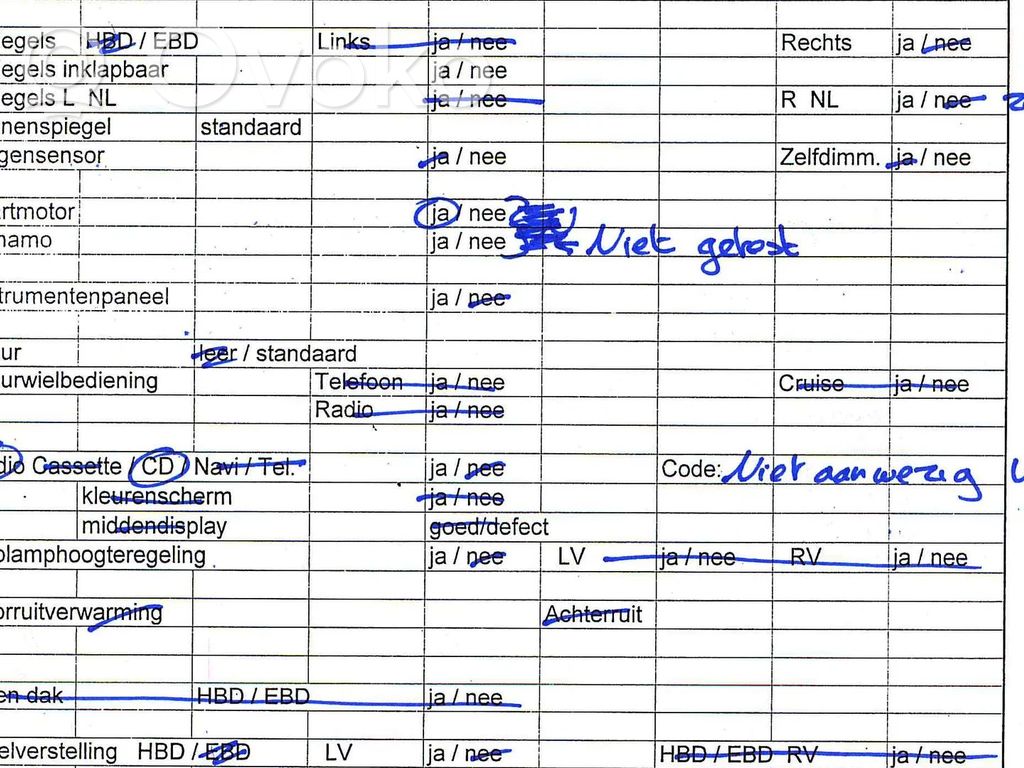 egels HBD / EBD Links ja / nee Rechts ja / nee
egels inklapbaar ja / nee
egels L NL ja / nee R NL ja / nee
nenspiegel standaard
gensensor ja / nee Zelfdimm. ja / nee
rtmotor ja / nee
namo ja / nee Niet getest
trumentenpaneel ja / nee
ur leer / standaard
urwielbediening Telefoon ja / nee Cruise ja / nee
Radio ja / nee
dio Cassette / CD / Navi / Tel. ja / nee Code: Niet aanwezig
kleurenscherm ja / nee
middendisplay goed/defect
plamphoogteregeling ja / nee LV ja / nee RV ja / nee
orruitverwarming Achterruit
en dak HBD / EBD ja / nee
elverstelling HBD / EBD LV ja / nee HBD / EBD RV ja / nee
Ovoko